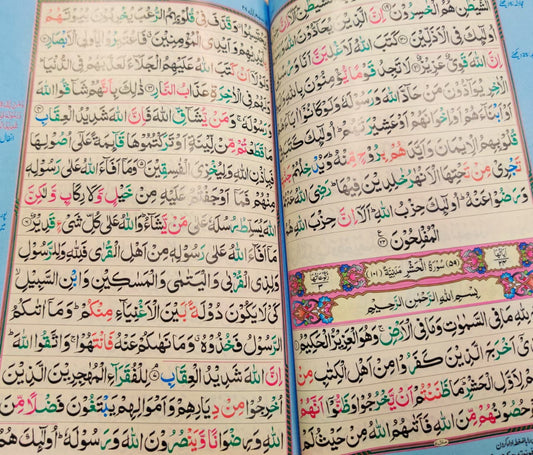 الشَّيْطٰنِ هُمُ الْخٰسِرُوْنَ ۝۱۹ اِنَّ الَّذِيْنَ يُحَآدُّوْنَ
اُولٰٓئِكَ فِى الْاَذَلِّيْنَ ۝۲۰ كَتَبَ اللّٰهُ لَاَغْلِبَنَّ اَنَا وَرُسُلِىْ
اِنَّ اللّٰهَ قَوِىٌّ عَزِيْزٌ ۝۲۱ لَا تَجِدُ قَوْمًا يُّؤْمِنُوْنَ بِاللّٰهِ
الْاٰخِرِ يُوَآدُّوْنَ مَنْ حَآدَّ اللّٰهَ وَرَسُوْلَهٗ وَلَوْ كَانُوْۤا اٰبَآءَ
اَوْ اَبْنَآءَهُمْ اَوْ اِخْوَانَهُمْ اَوْ عَشِيْرَتَهُمْ ؕ اُولٰٓئِكَ كَتَبَ
قُلُوْبِهِمُ الْاِيْمَانَ وَاَيَّدَهُمْ بِرُوْحٍ مِّنْهُ ؕ وَيُدْخِلُهُمْ
تَجْرِىْ مِنْ تَحْتِهَا الْاَنْهٰرُ خٰلِدِيْنَ فِيْهَا ؕ رَضِىَ اللّٰهُ
وَرَضُوْا عَنْهُ ؕ اُولٰٓئِكَ حِزْبُ اللّٰهِ ؕ اَلَاۤ اِنَّ حِزْبَ اللّٰهِ
الْمُفْلِحُوْنَ ۝۲۲
(۵۹) سُوْرَةُ الْحَشْرِ مَدَنِيَّةٌ (۱۰۱)
بِسْمِ اللّٰهِ الرَّحْمٰنِ الرَّحِيْمِ
لِلّٰهِ مَا فِى السَّمٰوٰتِ وَمَا فِى الْاَرْضِ ۚ وَهُوَ الْعَزِيْزُ الْحَكِيْمُ
اَخْرَجَ الَّذِيْنَ كَفَرُوْا مِنْ اَهْلِ الْكِتٰبِ مِنْ
لِاَوَّلِ الْحَشْرِ ؕ مَا ظَنَنْتُمْ اَنْ يَّخْرُجُوْا وَظَنُّوْۤا اَنَّهُمْ
حُصُوْنُهُمْ مِّنَ اللّٰهِ فَاَتٰٮهُمُ اللّٰهُ مِنْ حَيْثُ لَمْ
وَقَذَفَ فِىْ قُلُوْبِهِمُ الرُّعْبَ يُخْرِبُوْنَ بُيُوْتَهُمْ
وَاَيْدِى الْمُؤْمِنِيْنَ ۗ فَاعْتَبِرُوْا يٰۤاُولِى الْاَبْصَارِ
اَنْ كَتَبَ اللّٰهُ عَلَيْهِمُ الْجَلَآءَ لَعَذَّبَهُمْ فِى الدُّنْيَا
فِى الْاٰخِرَةِ عَذَابُ النَّارِ ۝۳ ذٰلِكَ بِاَنَّهُمْ شَآقُّوا اللّٰهَ
وَرَسُوْلَهٗ ۚ وَمَنْ يُّشَآقِّ اللّٰهَ فَاِنَّ اللّٰهَ شَدِيْدُ الْعِقَابِ ۝۴
مَا قَطَعْتُمْ مِّنْ لِّيْنَةٍ اَوْ تَرَكْتُمُوْهَا قَآئِمَةً عَلٰٓى اُصُوْلِهَا
فَبِاِذْنِ اللّٰهِ وَلِيُخْزِىَ الْفٰسِقِيْنَ ۝۵ وَمَاۤ اَفَآءَ اللّٰهُ عَلٰى رَسُوْلِهٖ
مِنْهُمْ فَمَاۤ اَوْجَفْتُمْ عَلَيْهِ مِنْ خَيْلٍ وَّلَا رِكَابٍ وَّلٰكِنَّ
اللّٰهَ يُسَلِّطُ رُسُلَهٗ عَلٰى مَنْ يَّشَآءُ ؕ وَاللّٰهُ عَلٰى كُلِّ شَىْءٍ قَدِيْرٌ ۝۶
مَاۤ اَفَآءَ اللّٰهُ عَلٰى رَسُوْلِهٖ مِنْ اَهْلِ الْقُرٰى فَلِلّٰهِ وَلِلرَّسُوْلِ
وَلِذِى الْقُرْبٰى وَالْيَتٰمٰى وَالْمَسٰكِيْنِ وَابْنِ السَّبِيْلِ ۙ
كَىْ لَا يَكُوْنَ دُوْلَةً ۢ بَيْنَ الْاَغْنِيَآءِ مِنْكُمْ ؕ وَمَاۤ اٰتٰٮكُمُ
الرَّسُوْلُ فَخُذُوْهُ ۚ وَمَا نَهٰٮكُمْ عَنْهُ فَانْتَهُوْا ۚ وَاتَّقُوا اللّٰهَ ؕ
اِنَّ اللّٰهَ شَدِيْدُ الْعِقَابِ ۘ لِلْفُقَرَآءِ الْمُهٰجِرِيْنَ الَّذِيْنَ
اُخْرِجُوْا مِنْ دِيَارِهِمْ وَاَمْوَالِهِمْ يَبْتَغُوْنَ فَضْلًا مِّنَ
اللّٰهِ وَرِضْوَانًا وَّيَنْصُرُوْنَ اللّٰهَ وَرَسُوْلَهٗ ؕ اُولٰٓئِكَ هُمُ